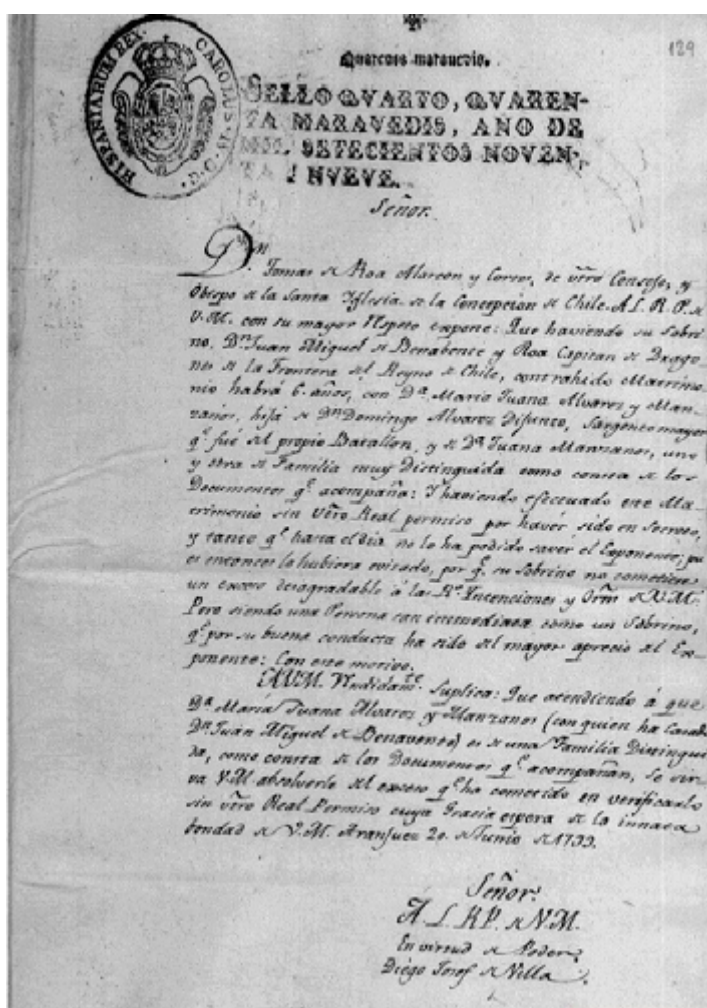 129
Quarenta maravedis.
HISPANIARUM REX. CAROLUS IV D. G.
SELLO QVARTO, QVAREN-
TA MARAVEDIS, AÑO DE
MIL SETECIENTOS NOVEN-
TA I NVEVE.
Señor.
Dn. Tomas de Roa Alarcon y Cortes, de vtro Consejo, y
Obispo de la Santa Yglesia de la Concepcion de Chile. A L. R. P. de
V.M. con su mayor respeto expone: Que haviendo su Sobri-
no, Dn. Juan Miguel de Benabente y Roa Capitan de Drago-
nes de la Frontera del Reyno de Chile, contrahido Matrimo-
nio habrá 6. años, con Da. Maria Juana Alvares y Man-
zanos, hija de Dn. Domingo Alvares Difunto, Sargento mayor
qe. fué del propio Batallon, y de Da. Juana Manzanos, uno
y otra de Familia muy Distinguida como consta de los
Documentos qe. acompaña: Y haviendo efectuado este Ma-
trimonio sin vtro Real permiso por haver sido en Secreto,
y tanto qe. hasta el dia no lo ha podido saver el Exponente; pu
es entonces lo hubiera evitado, por qe. su Sobrino no cometiese
un exceso desagradable á las Rs. Intenciones y Orns. de V.M.
Pero siendo una Persona tan inmediata como un Sobrino,
qe. por su buena conducta ha sido del mayor aprecio del Ex-
ponente: Con este motivo.
A V.M. Rendidamte. Suplica: Que atendiendo á que
Da. María Juana Alvares y Manzanos (con quien ha Casado
Dn. Juan Miguel de Benavente) es de una Familia Distingui-
da, como consta de los Documentos qe. acompañan, se sir-
va V.M. absolverle del exceso qe. ha cometido en verificarlo
sin vtro Real Permiso cuya Gracia espera de la innata
bondad de V.M. Aranjuez 20 de Junio de 1799.
Señor.
A L. R. P. de V.M.
En virtud de Poder.
Diego Josef de Villa.